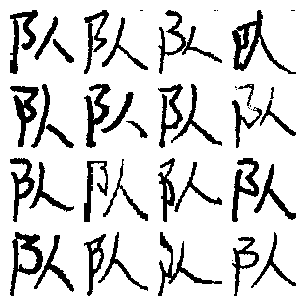 队队队队
队队队队
队队队队
队队队队